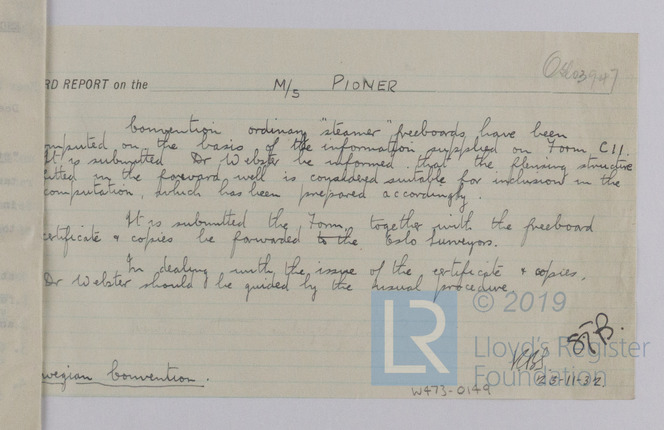 Oslo 3947
RD REPORT on the M/S PIONER
Convention ordinary "steamer" freeboards have been
mputed on the basis of the information supplied on Form C11.
It is submitted Dr Webster be informed that the flensing structure
itted in the forward well is considered suitable for inclusion in the
computation, which has been prepared accordingly.
It is submitted the Form, together with the freeboard
ertificate & copies be forwarded to the Oslo Surveyors.
In dealing with the issue of the certificate & copies,
Dr Webster should be guided by the usual procedure
© 2019
LR
Lloyd's Register
Foundation
23-11-32
wegian Convention.
W473-0149